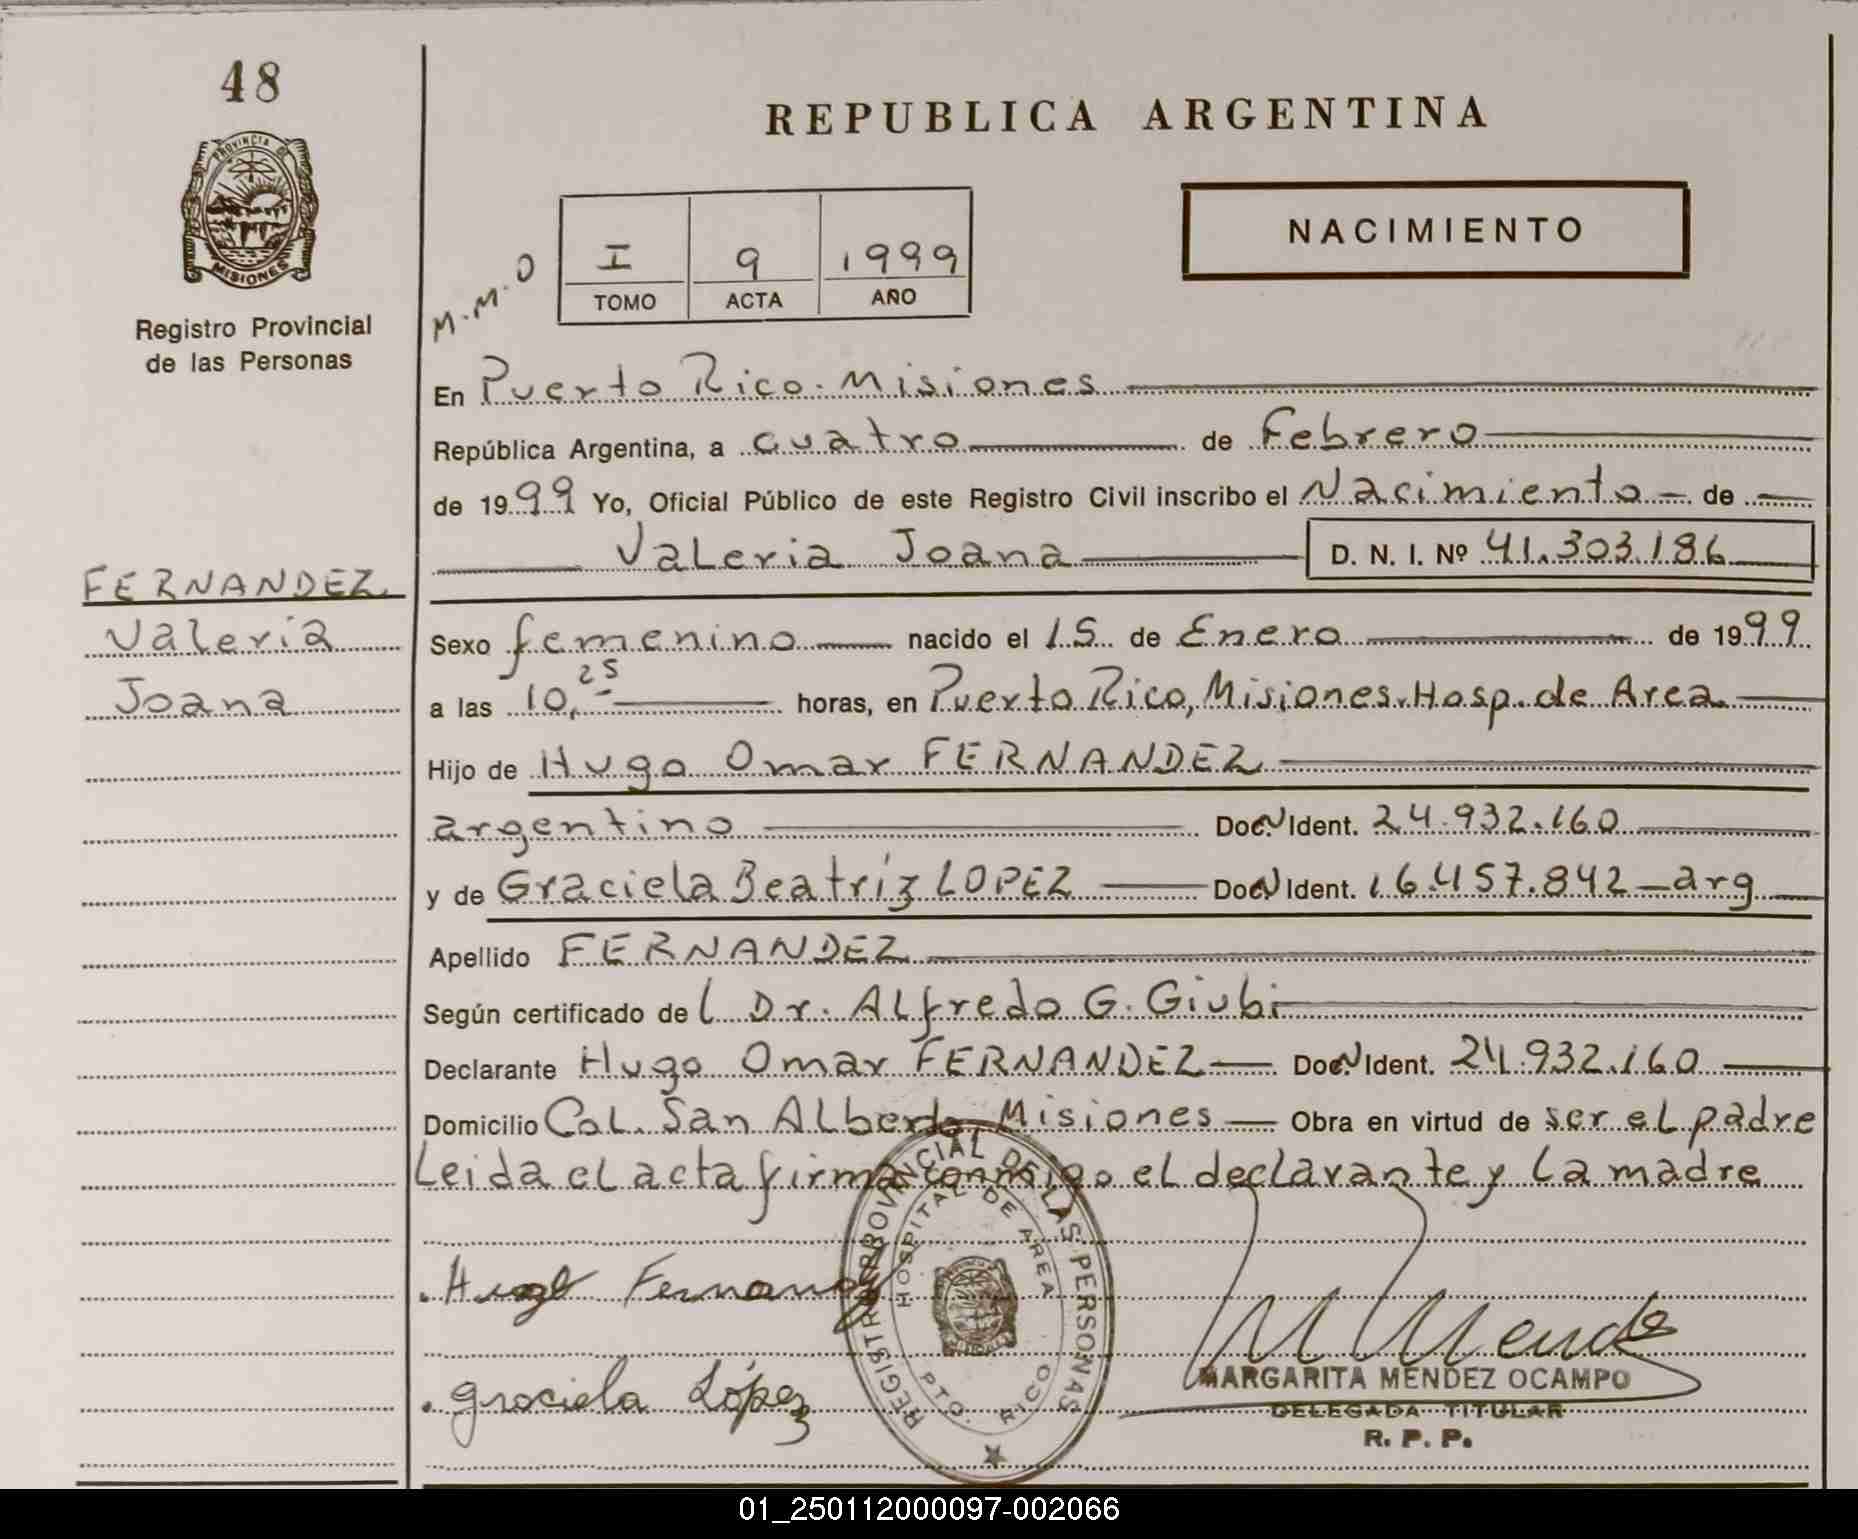 48
PROVINCIA DE
MISIONES
Registro Provincial
de las Personas
REPUBLICA ARGENTINA
NACIMIENTO
M.M.O
I 9 1999
TOMO ACTA AÑO
En Puerto Rico. Misiones
República Argentina, a cuatro de Febrero
de 1999 Yo, Oficial Público de este Registro Civil inscribo el Nacimiento de
Valeria Joana D. N. I. Nº 41.303.186
FERNANDEZ
Valeria
Joana
Sexo femenino nacido el 15 de Enero de 1999
a las 10,25 horas, en Puerto Rico, Misiones. Hosp. de Area
Hijo de Hugo Omar FERNANDEZ
argentino Doc. N Ident. 24.932.160
y de Graciela Beatríz LOPEZ Doc. N Ident. 16.457.842 - arg
Apellido FERNANDEZ
Según certificado de l Dr. Alfredo G. Giubi
Declarante Hugo Omar FERNANDEZ Doc. N Ident. 24.932.160
Domicilio Col. San Alberto, Misiones Obra en virtud de ser el padre
Leida el acta firma conmigo el declarante y la madre
REGISTRO PROVINCIAL DE LAS PERSONAS
HOSPITAL DE AREA
PTO. RICO
Hugo Fernandez
Graciela López
M Mendez
MARGARITA MENDEZ OCAMPO
DELEGADA TITULAR
R. P. P.
01_250112000097-002066